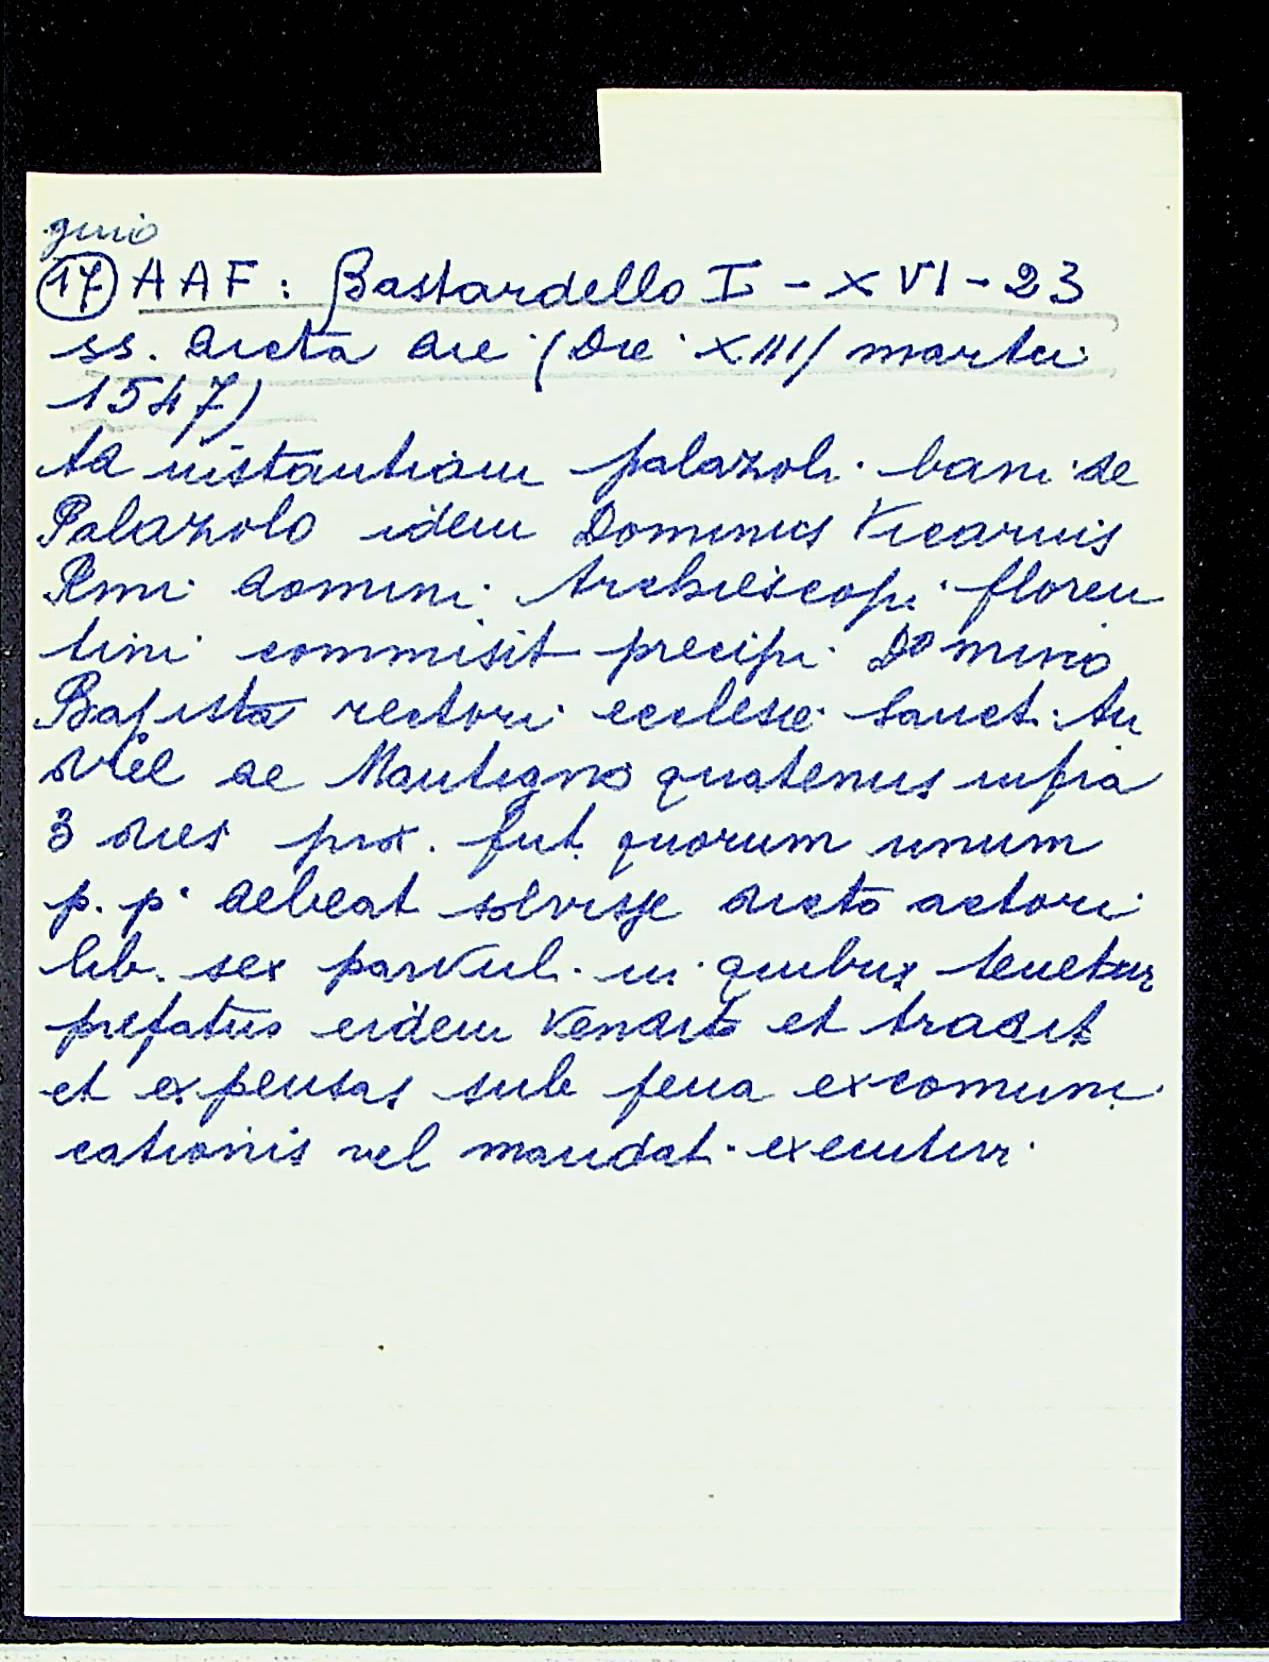 (17) AAF: Bastardello I - XVI - 23
ss. dicta die (Die XIII martii
1547)
Ad instantiam palazoli bani de
Palazolo idem Dominus Vicarius
Rmi domini Archiescopi floren
tini commisit precipi Domino
Bapista rectori ecclesie Sanct. An
dree de Mantigno quatenus infra
3 dies prox. fut. quorum unum
p. p. debeat solvisse dicto actori
lib. sex parvul. in quibus tenetur
prefatus eidem Vendito et tradit
et expensas sub pena excomuni
cationis vel mandat. executivi